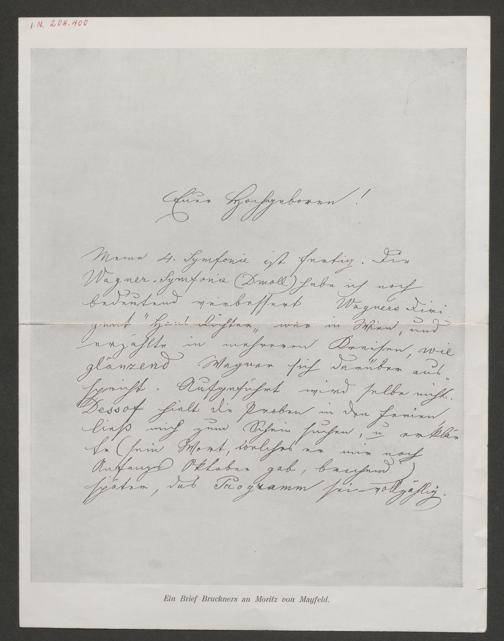 I.N. 208.400
Euer Hochgeboren!
Meine 4. Symfonie ist fertig. Die
Wagner-Symfonie (Dmoll) habe ich noch
bedeutend verbessert. Wagners Diri
gent "Hans Richter" war in Wien, und
erzählte in mehreren Kreisen, wie
glänzend Wagner sich darüber aus
spricht. Aufgeführt wird selbe nicht.
Dessof hielt die Proben in den Ferien
ließ mich zum Schein suchen, u erklär
te (sein Wort, welches er mir noch
Anfangs Oktober gab, brechend)
später, das Programm sei vollzählig.
Ein Brief Bruckners an Moritz von Mayfeld.